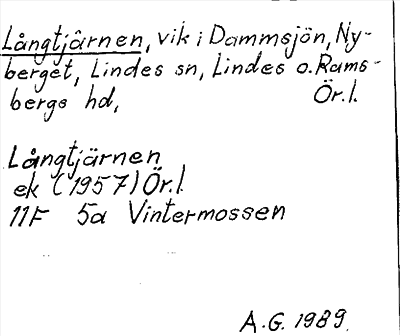 Långtjärnen, vik i Dammsjön, Ny-
berget, Lindes sn, Lindes o. Rams-
bergs hd, Ör.l.
Långtjärnen
ek (1957) Ör.l.
11F 5a Vintermossen
A.G. 1989.